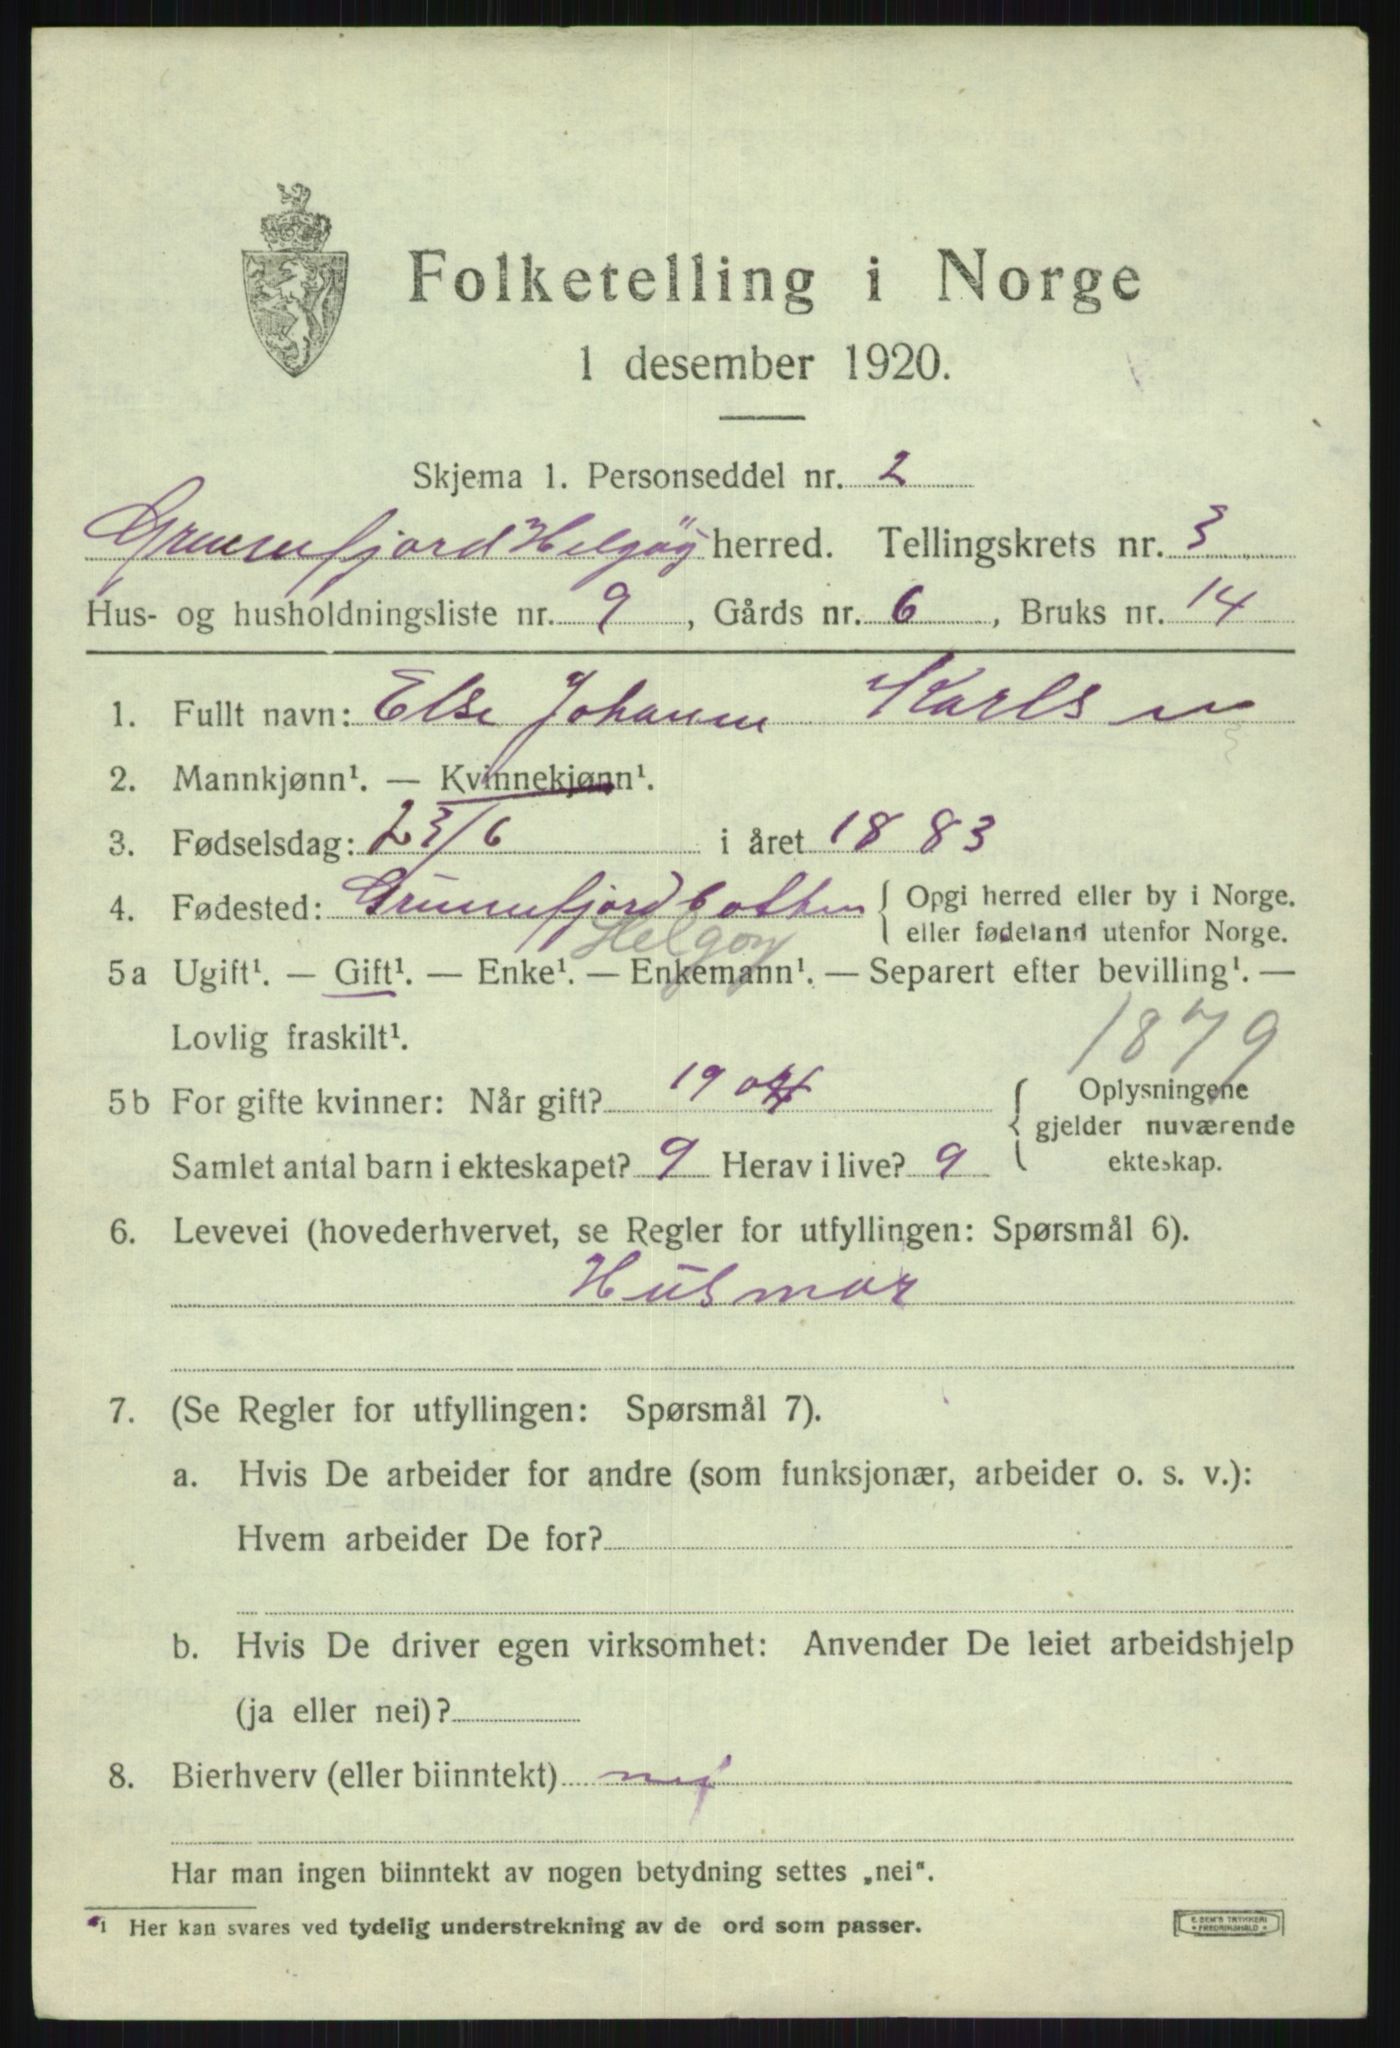 Folketelling i Norge
1 desember 1920.
Skjema 1. Personseddel nr. 2
Grunnfjord Helgöy herred. Tellingskrets nr. 3
Hus- og husholdningsliste nr. 9, Gårds nr. 6, Bruks nr. 14
1. Fullt navn: Else Johanne Karlsen
2. Mannkjønn¹. — Kvinnekjønn¹.
3. Fødselsdag: 23/6 i året 1883
4. Fødested: Grunnfjordbotten { Opgi herred eller by i Norge.
eller fødeland utenfor Norge.
Helgøy
5a Ugift¹. — Gift¹. — Enke¹. — Enkemann¹. — Separert efter bevilling¹. —
Lovlig fraskilt¹.
1879
5b For gifte kvinner: Når gift? 190 { Oplysningene
gjelder nuværende
ekteskap.
Samlet antal barn i ekteskapet? 9 Herav i live? 9
6. Levevei (hovederhvervet, se Regler for utfyllingen: Spørsmål 6).
Husmor
7. (Se Regler for utfyllingen: Spørsmål 7).
a. Hvis De arbeider for andre (som funksjonær, arbeider o. s. v.):
Hvem arbeider De for?
b. Hvis De driver egen virksomhet: Anvender De leiet arbeidshjelp
(ja eller nei)?
8. Bierhverv (eller biinntekt) nei
Har man ingen biinntekt av nogen betydning settes „nei“.
¹ Her kan svares ved tydelig understrekning av de ord som passer.
E. SEM'S TRYKKERI
FREDRIKSHALD